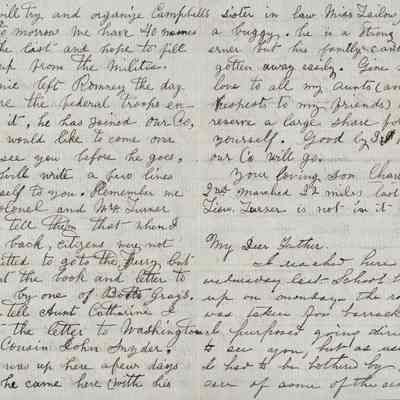 will try and organize Campbells
to morrow we have 40 names
the last and hope to fill
up from the Militia.
left Romney the day
re the federal troops en-
it, he has joined our Co,
would like to come over
see you before he goes,
will write a few lines
self to you. Remember me
olonel and Mrs. Turner
tell them that when I
back, citizens were not
itted to go to the ferry, but
t the book and letter to
by one of Botts Grays.
tell Aunt Catharine I
the letter to Washington
Cousin John Snyder.
was up here a few days
he came here with his
sister in law Miss Tailow,
a buggy. he is a strong
erner but his family cant
gotten away easily. Give
love to all my aunts (an
respects to my friends)
reserve a large share for
yourself. Good by
our Co will go.
Your loving son Char
2nd Marched 32 miles last
Lieu. Turner is not in it
My Dear Father.
I reached here
wednesday last School
up on monday. the ro
was taken for barrack
I purposed going dire
to see you, but as us
I had to be bothered by
car of some of the sc